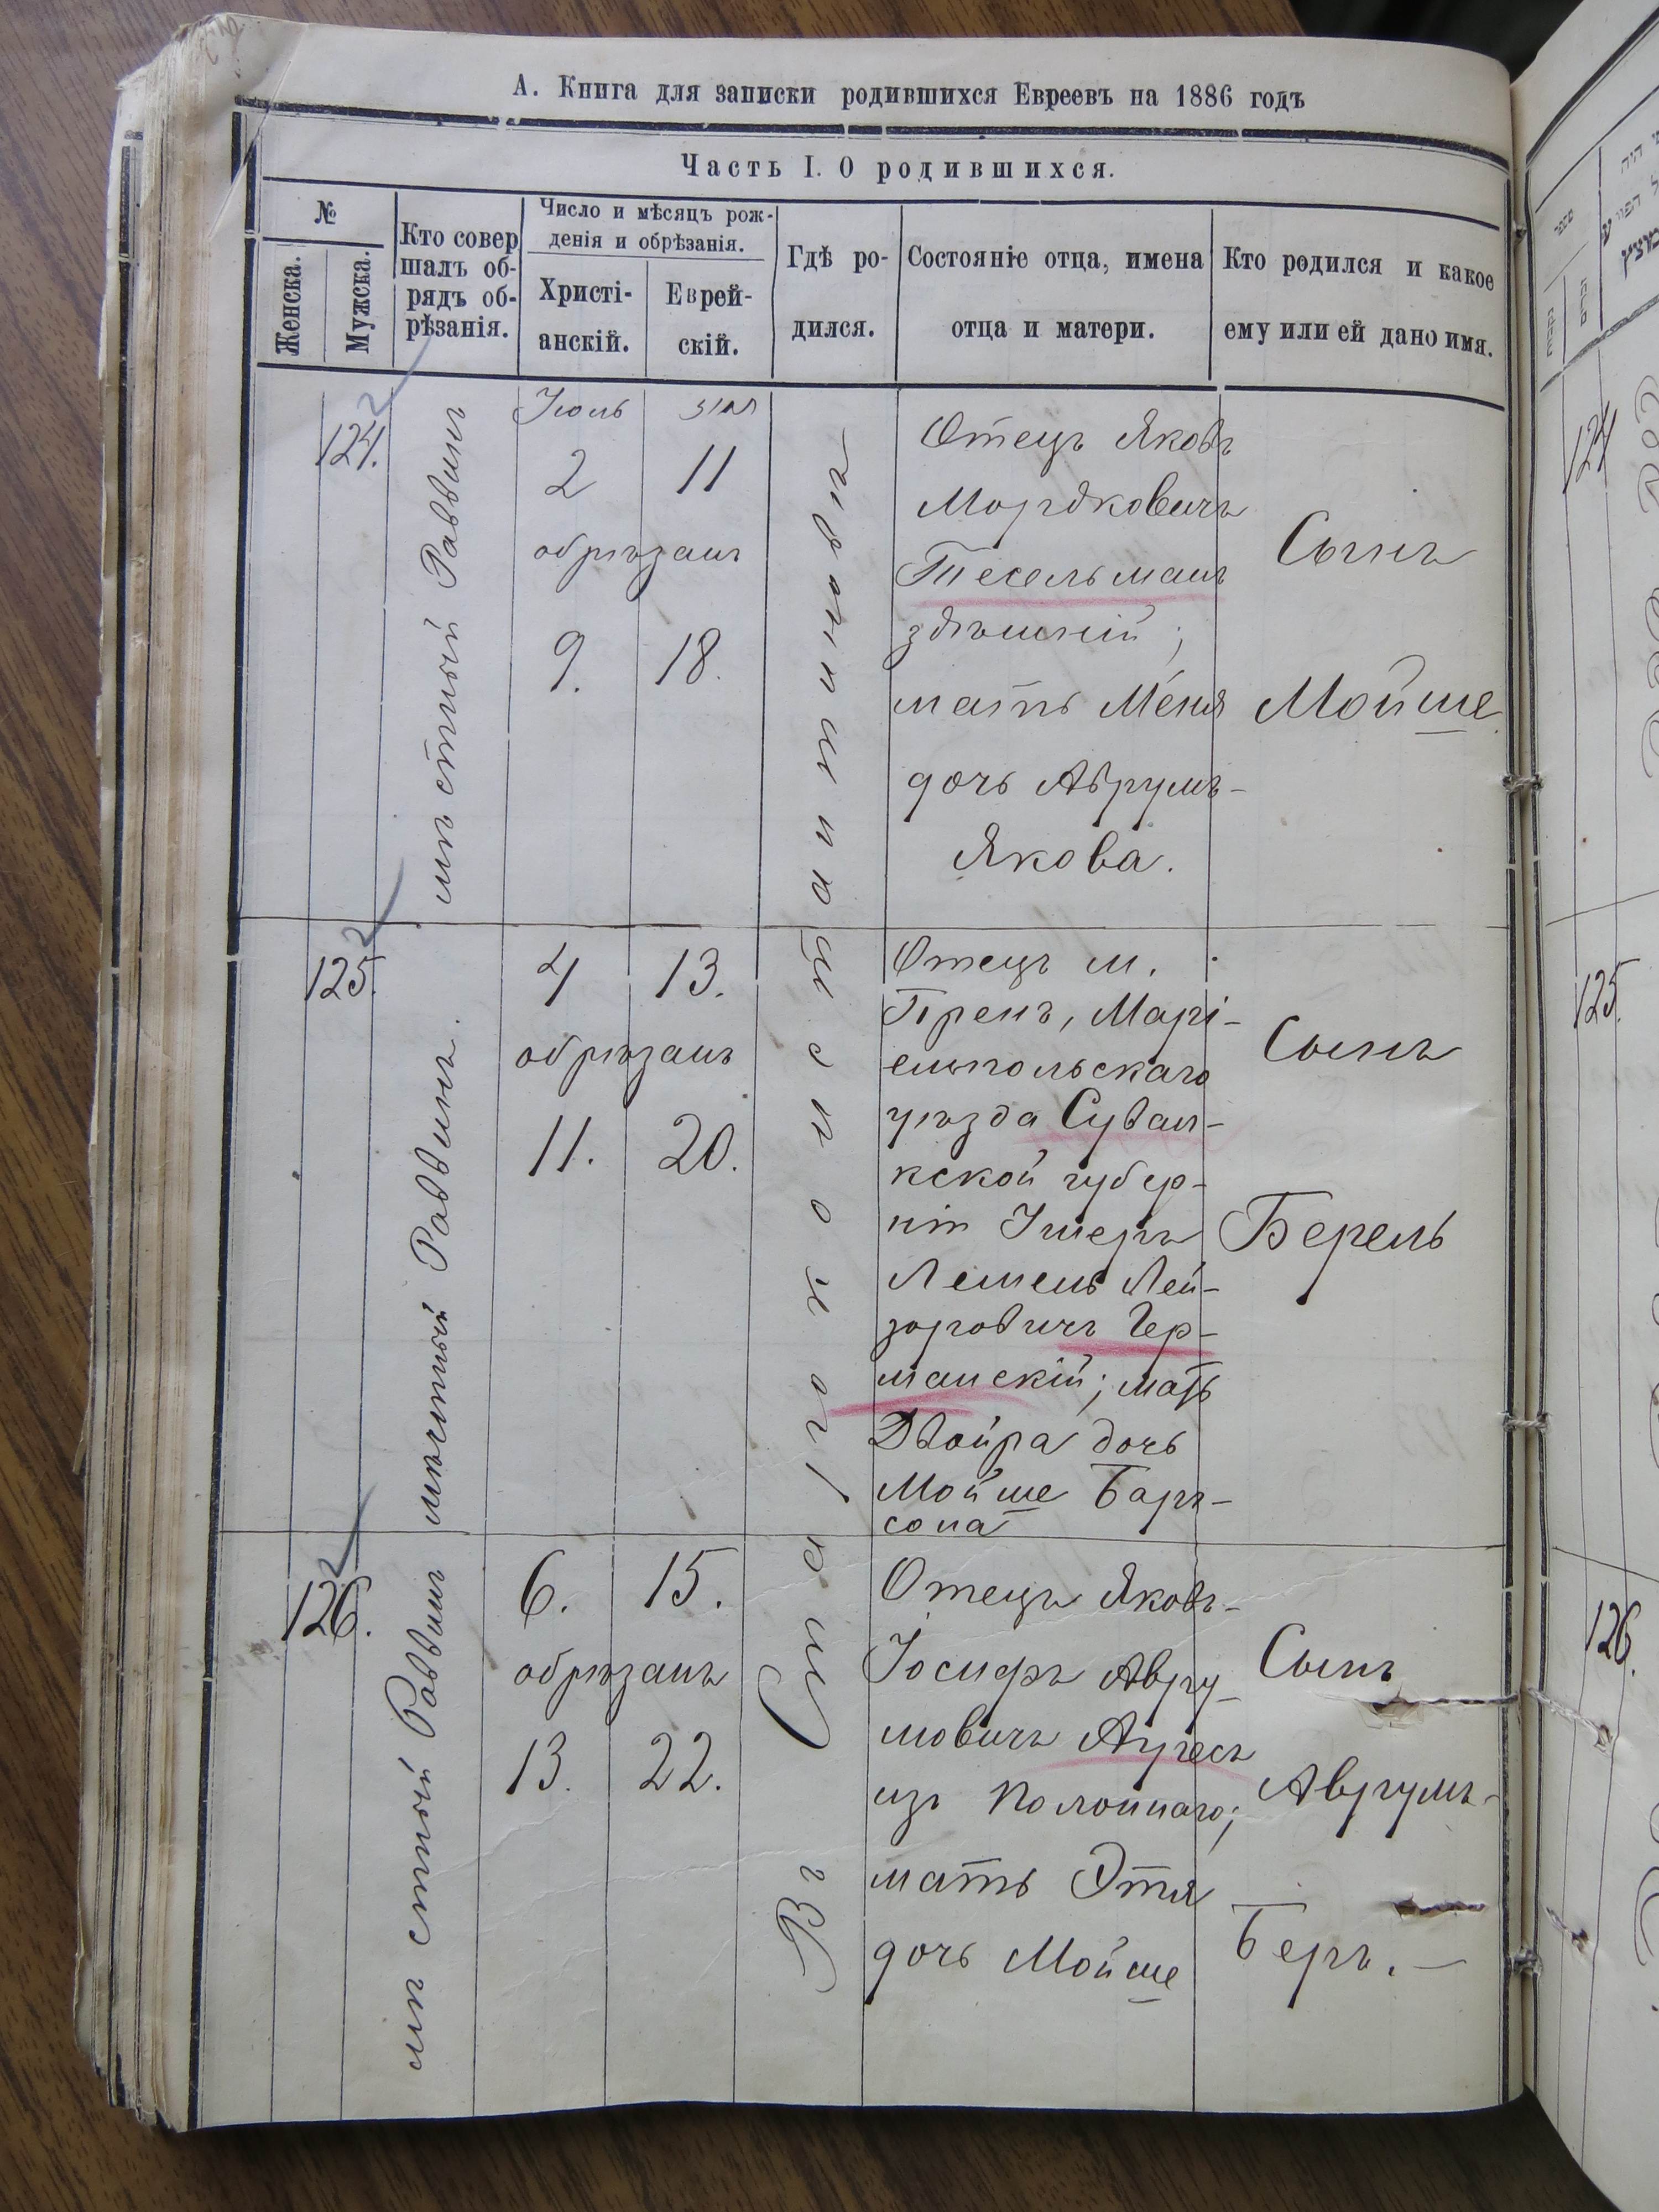 А. Книга для записки родившихся Евреевъ на 1886 годъ
Часть I. О родившихся.
№
Женска.
Мужска.
Кто совер
шалъ об-
рядъ об-
рѣзанія.
Число и мѣсяцъ рож-
денія и обрѣзанія.
Христі-
анскій.
Еврей-
скій.
Гдѣ ро-
дился.
Состояніе отца, имена
отца и матери.
Кто родился и какое
ему или ей дано имя.
124.
мѣстный Раввинъ
Іюль
2
11
обрѣзанъ
9.
18.
Отецъ Яковъ
Мордковичъ
Тесельманъ
здѣшній;
мать Меня
дочь Аврумъ-
Якова.
Сынъ
Мойше
125.
мѣстный Раввинъ.
4
13.
обрѣзанъ
11.
20.
Отецъ м.
Пренъ, Марі-
емпольскаго
уѣзда Сувал-
кской губер-
ніи
Лемель Лей-
зоровичъ Гер-
манскій; мать
Двойра дочь
Мойше Баръ-
сона
Сынъ
Берель
126.
мѣстный Раввинъ
6.
15.
обрѣзанъ
13.
22.
Отецъ Яковъ-
Іосифъ Авру-
мовичъ
изъ Полоннаго;
мать Этя
дочь Мойше
Сынъ
Аврумъ-
Беръ.-
Въ
124
125.
126.